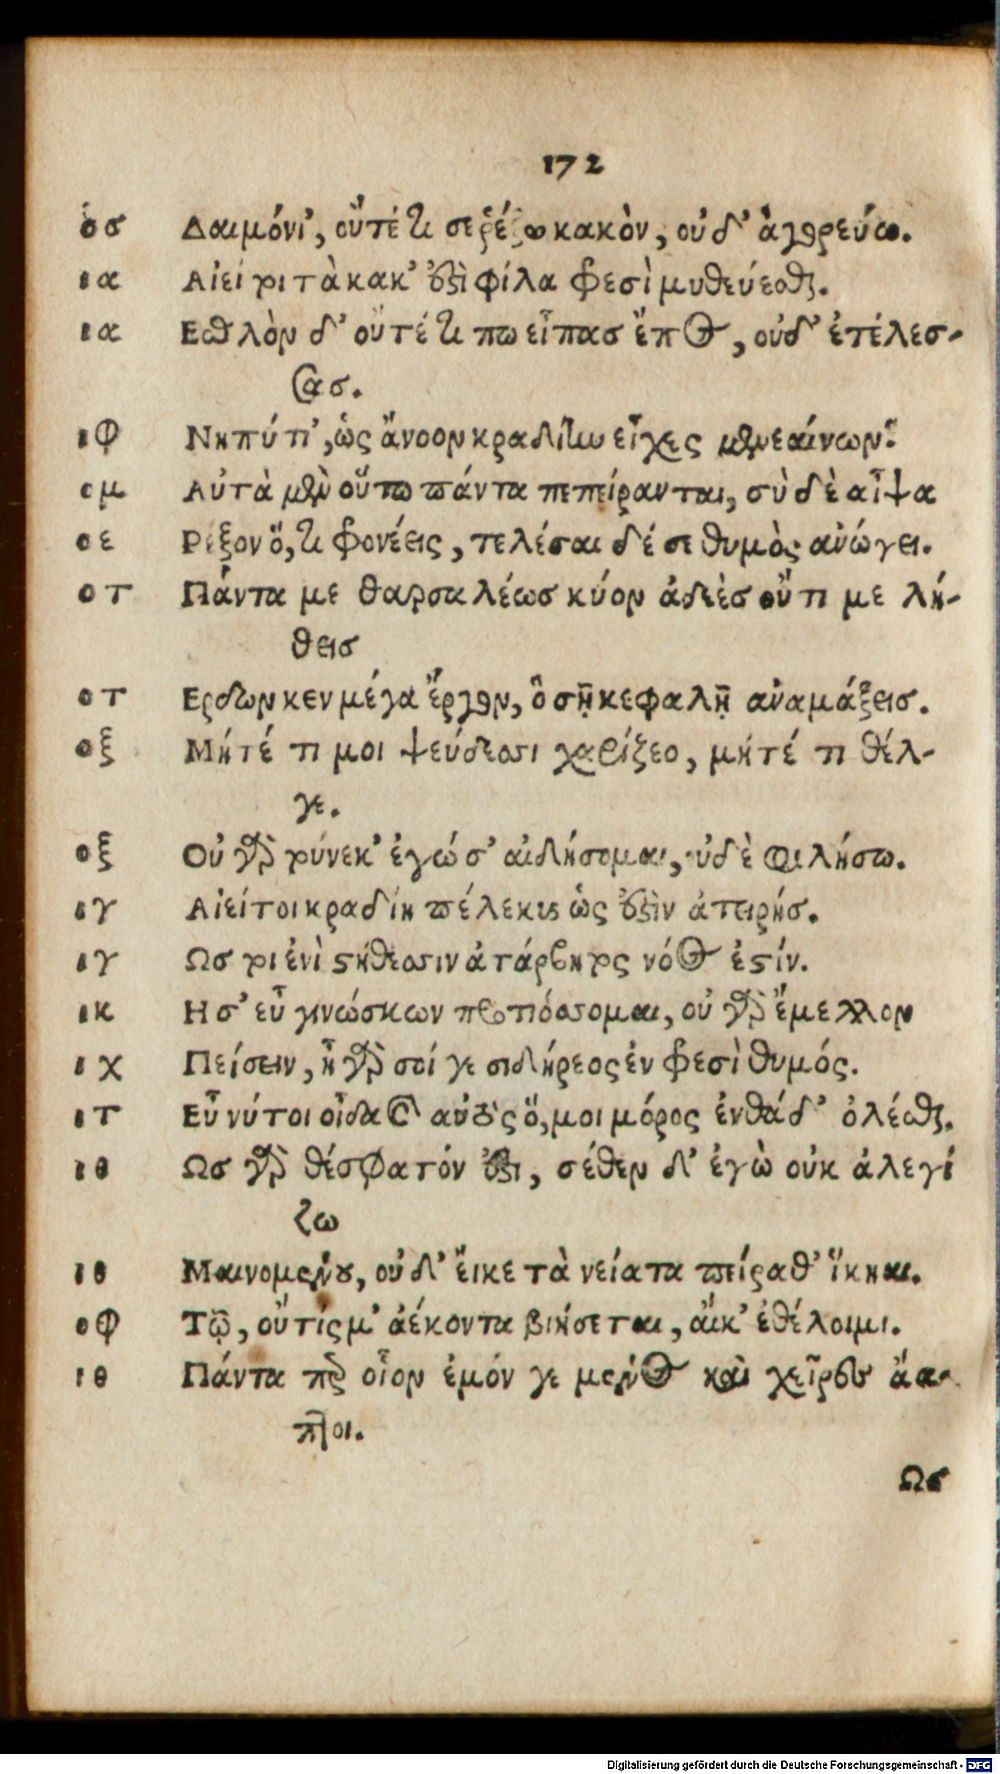 172
οσ Δαιμόνι’, οὔτέ τι σε ῥέξω κακὸν, οὐδ’ ἀγορεύω.
ια Αἰεί τοι τὰ κακ’ ἐστὶ φίλα φρεσὶ μυθεύεσθαι.
ια Εσθλὸν δ’ οὔτέ τι πω εἶπασ ἔπος, οὐδ’ ἐτέλεσ-
σασ.
ιφ Νηπύτι’, ὡς ἄνοον κραδίην εἶχες μενεαίνων·
ομ Αὐτὰ μὲν οὔπω πάντα πεπείρανται, σὺ δὲ αἶψα
οε Ρέξον ὅ, τι φρονέεις, τελέσαι δέ σε θυμὸς ἀνώγει.
οτ Πάντα με θαρσαλέωσ κύον ἀδεὲσ οὔτι με λή-
θεισ
οτ Ερδων κεν μέγα ἔργον, ὃ σῇ κεφαλῇ ἀναμάξεισ.
οξ Μήτέ τι μοι ψεύδεσσι χαρίζεο, μήτέ τι θέλ-
γε.
οξ Οὐ γὰρ τούνεκ’ ἐγώ σ’ αἰδήσομαι, οὐδὲ φιλήσω.
ιγ Αἰεί τοι κραδίη πέλεκυς ὡς ἐστὶν ἀτειρήσ.
ιγ Ωσ τοι ἐνὶ στήθεσσιν ἀτάρβητος νόος ἐστίν.
ικ Η σ’ εὖ γινώσκων προτιόσσομαι, οὐ γὰρ ἔμελλον
ιχ Πείσειν, ἦ γὰρ σοί γε σιδήρεος ἐν φρεσὶ θυμός.
ιτ Εὖ νύ τοι οἶδα καὶ αὐτὸς ὅ, μοι μόρος ἐνθάδ’ ὀλέσθαι.
ιθ Ωσ γὰρ θέσφατόν ἐστι, σέθεν δ’ ἐγὼ οὐκ ἀλεγί
ζω
ιθ Μαινομένου, οὐδ’ ἔικε τὰ νείατα πείραθ’ ἵκηαι.
οφ Τῷ, οὔτίς μ’ ἀέκοντα βιήσεται, αἴκ’ ἐθέλοιμι.
ιθ Πάντα οἷον ἐμόν γε μένος καὶ χεῖρες ἄα-
πτοι.
Ωσ
Digitalisierung gefördert durch die Deutsche Forschungsgemeinschaft - DFG